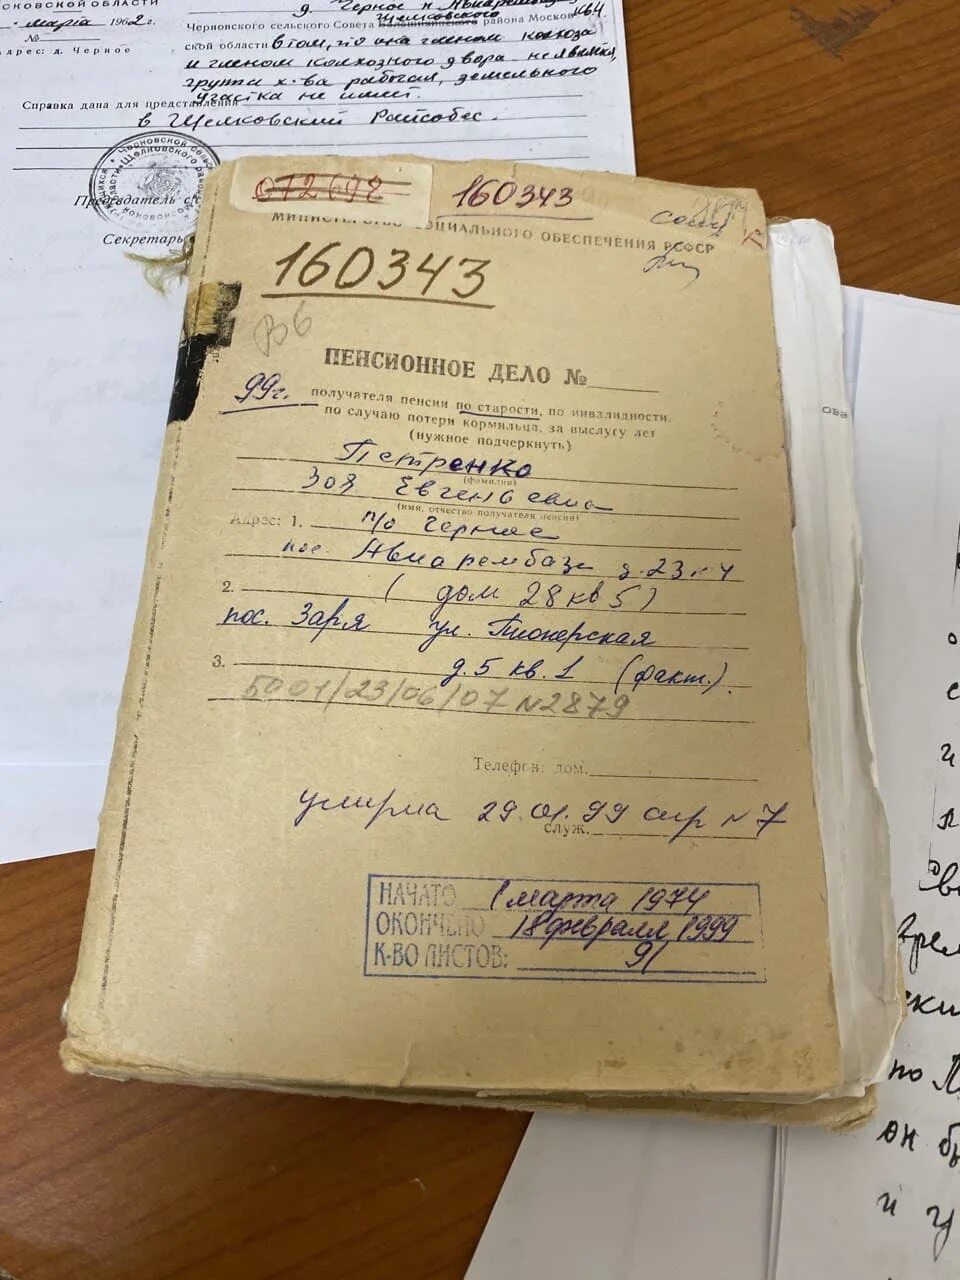 СКОВСКОЙ ОБЛАСТИ
марта 1962 г.
№
Адрес: д. Черное
д. Черное п. Авиаремба
Черновского сельского Совета Щелковского района Москов-
ской области в том, что она членом колхоза
и членом колхозного двора не явл
группа х-ва рабочая, земельного
участка не имеет.
Справка дана для представления
в Щелковский Райсобес.
Председатель
Секретарь
672692
160343
МИНИСТЕРСТВО СОЦИАЛЬНОГО ОБЕСПЕЧЕНИЯ РСФСР
160343
В6
ПЕНСИОННОЕ ДЕЛО №
99г.
получателя пенсии по старости, по инвалидности,
по случаю потери кормильца, за выслугу лет
(нужное подчеркнуть)
Петренко
(фамилия)
Зоя Евгеньевна
(имя, отчество получателя пенсии)
Адрес: 1. п/о Черное
пос. Авиарембаза д.23 к 4
2. (дом 28 кв 5)
пос. Заря ул. Пионерская
3. д.5 кв.1 (факт.).
5001/23/06/07 №2879
Телефон: дом.
умерла 29.01.99 а/р №7
служ.
НАЧАТО 1 марта 1974
ОКОНЧЕНО 18 февраля 1999
К-ВО ЛИСТОВ: 91
по
он
и у